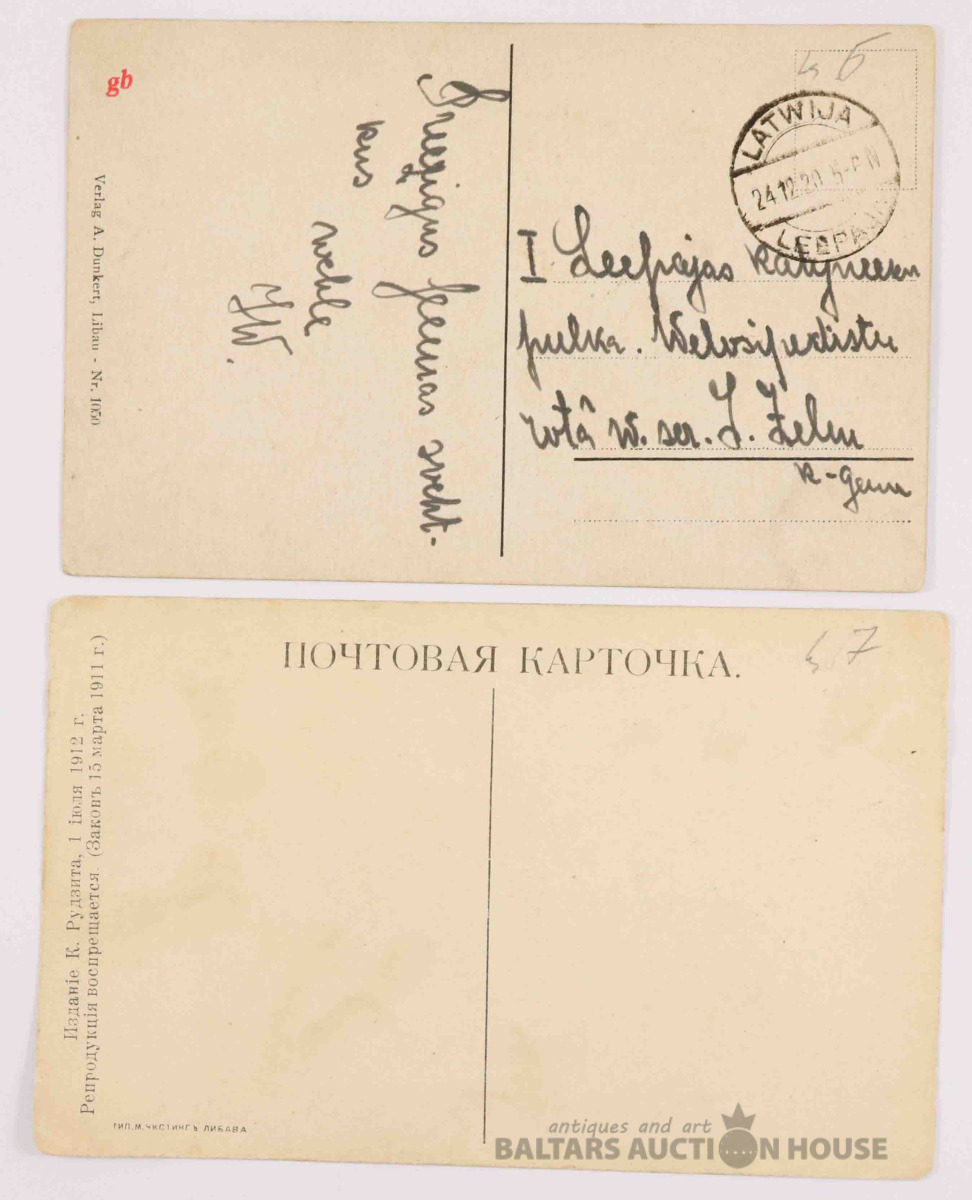 gb
Verlag A. Dunkert, Libau - Nr. 1050
Preezigus seemas sveht-
kus
wehle
JW.
LATWIJA
24 12 20 5-P N
LEEPAJA
I Leepajas
pulka. Welosipedistu
rotâ w. ser. J. Zelm
k-gam
ПОЧТОВАЯ КАРТОЧКА.
7
Изданіе К. Рудзита, 1 іюля 1912 г.
Репродукція воспрещается. (Законъ 15 марта 1911 г.)
ТИП. М. ЛИБАВА
antiques and art
BALTARS AUCTION HOUSE